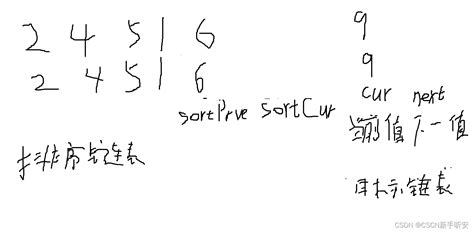 2 4 5 1 6 9
2 4 5 1 6 9
sortPrve sortCur cur next
当前值 下一值
排序链表
目标链表
CSDN @CSCN新手听安